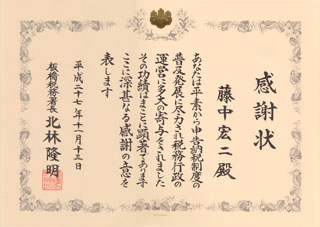 感謝状
藤中宏二殿
あなたは平素から申告納税制度の
普及発展に尽力され税務行政の
運営に多大の寄与をされました
その功績はまことに顕著であります
ここに深甚なる感謝の意を
表します
平成二十七年十一月十三日
板橋税務署長 北林隆明